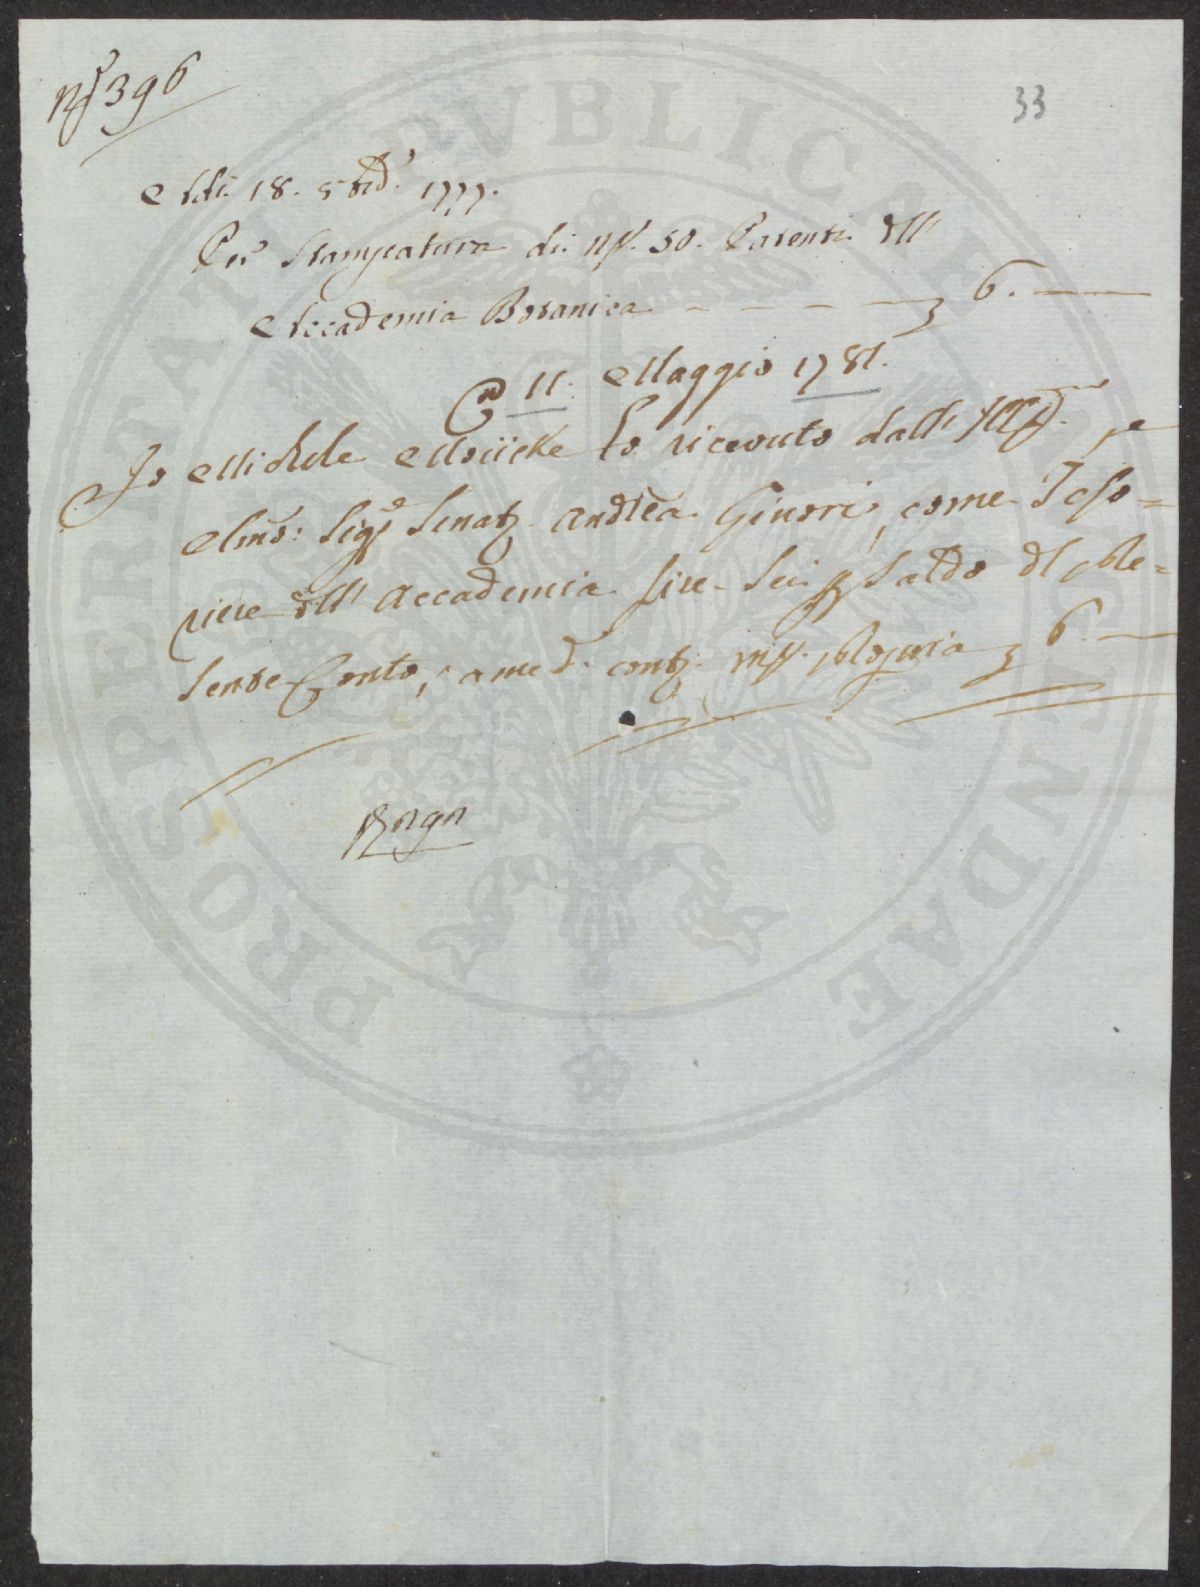 N.º 396
33
Adi. 18. 1777.
Per Stampatura di N.º 50. Patenti dll'
Accademia Botanica - - - - - 6. —
11. Maggio 1781.
Io Michele Moücke ho riceuuto dall'
Sig.re Senat.e Andrea Ginori, come Teso=
riere dll' Accademia lire Sei Saldo dl pre=
sente Conto, a me d. cont. m.º propria 6. —
PROSPERITATI PVBLICAE AVGENDAE